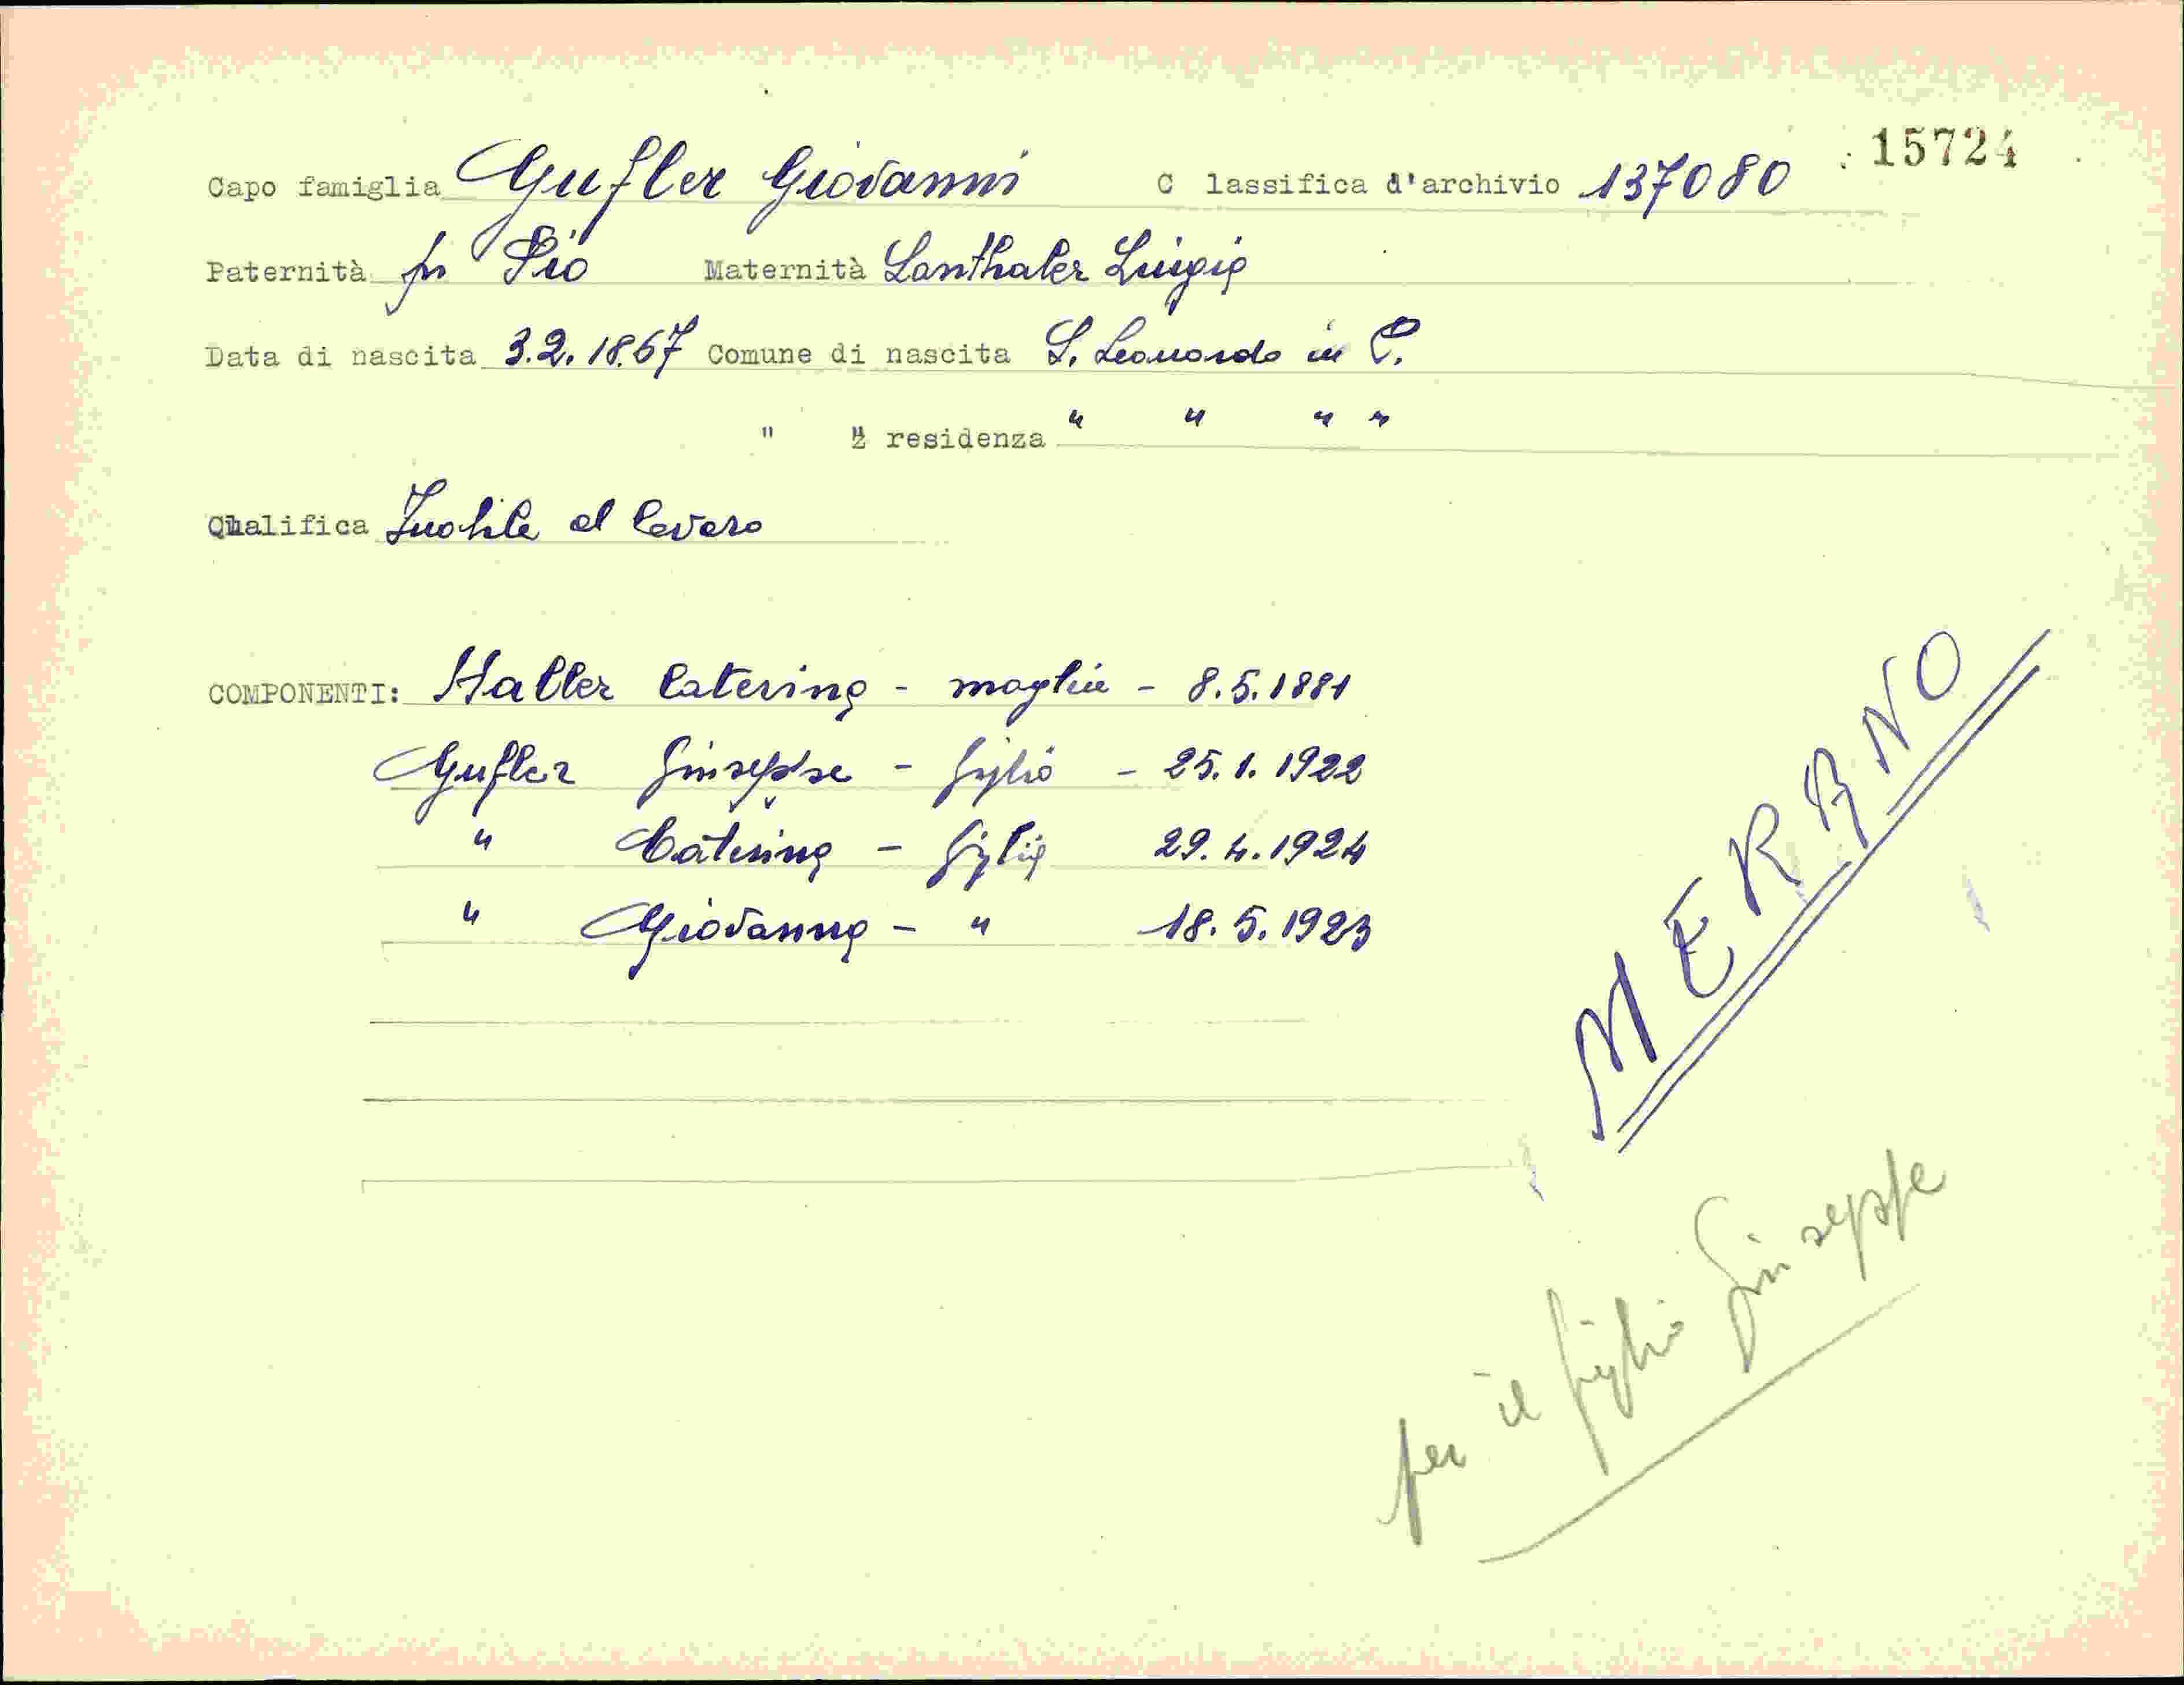 15724
Capo famiglia Gufler Giovanni C lassifica d'archivio 137080
Paternità fu Pio Maternità Lanthaler Luigia
Data di nascita 3.2.1867 Comune di nascita S. Leonardo in P.
" " residenza " " " "
Qualifica Inabile al lavoro
COMPONENTI: Haller Caterina - moglie - 8.5.1881
Gufler Giuseppe - figlio - 25.1.1922
" Caterina - figlia 29.4.1924
" Giovanna - " 18.5.1923
MERANO
per il figlio Giuseppe